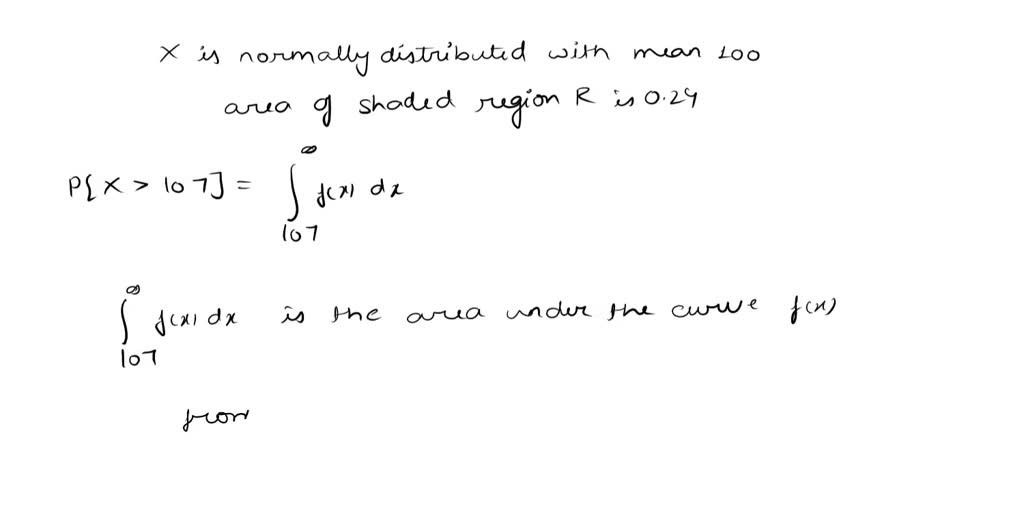 X is normally distributed with mean 100
area of shaded region R is 0.24
P[X > 107] = ∫₁₀₇^∞ f(x) dx
∫₁₀₇^∞ f(x) dx is the area under the curve f(x)
from